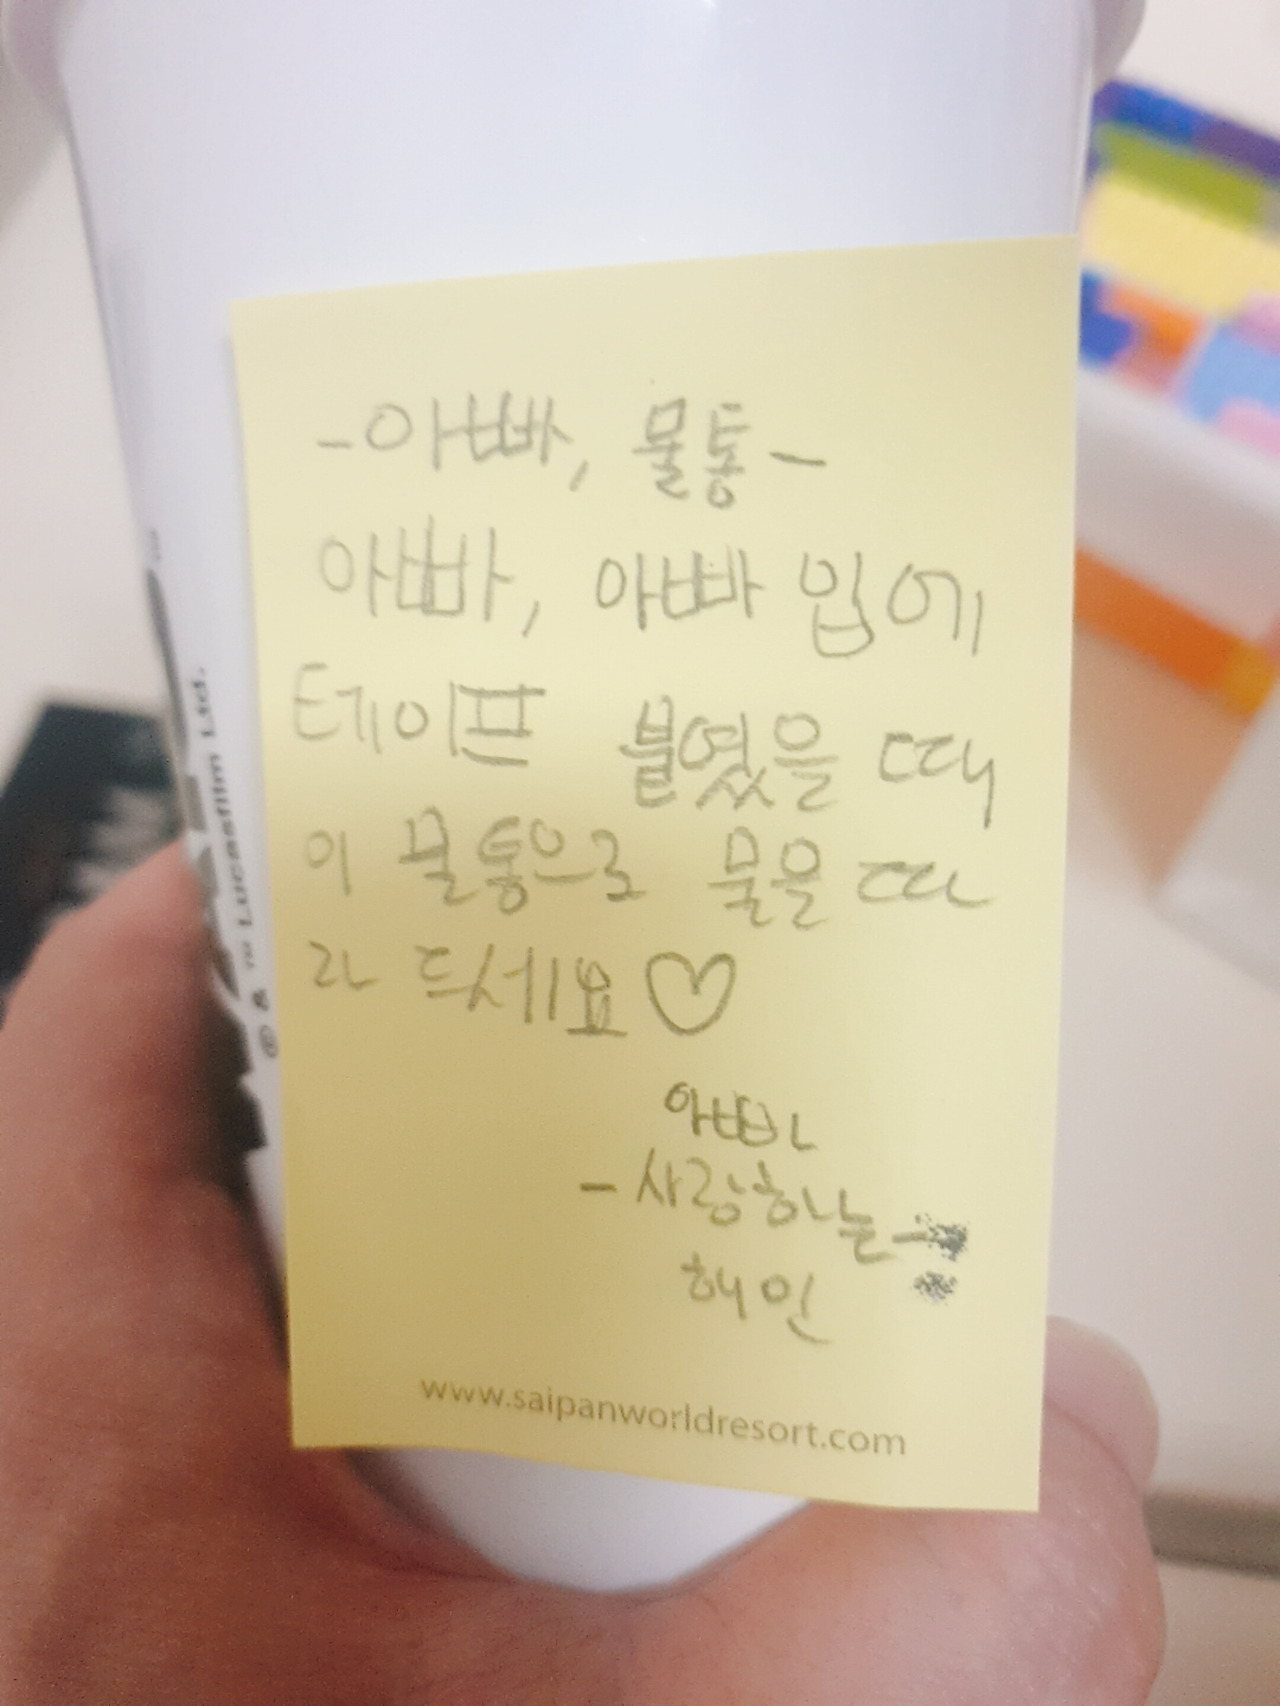 -아빠, 물통-
아빠, 아빠 입에
테이프 붙였을 때
이 물통으로 물을 따
라 드세요♡
아빠
-사랑하는-
해인
www.saipanworldresort.com
® & ™ Lucasfilm Ltd.